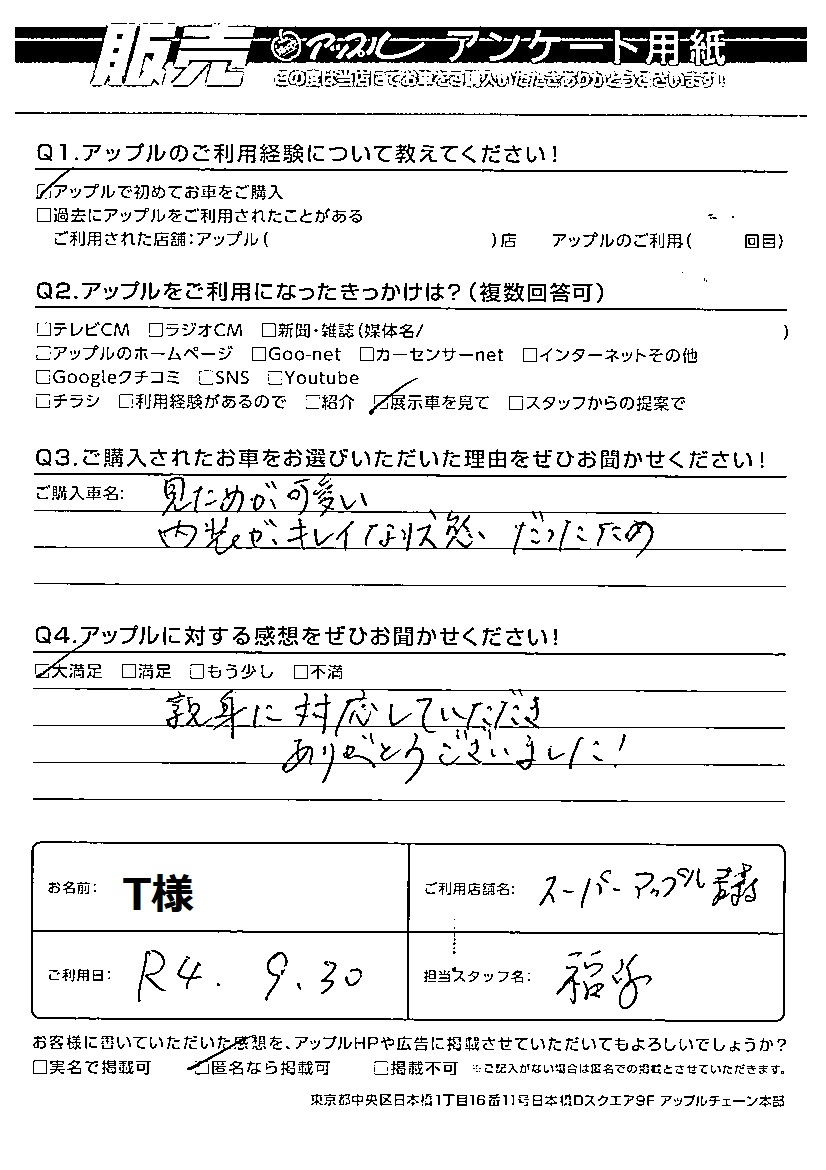 販売 アップル アンケート用紙
この度は当店にてお車をご購入いただきありがとうございます!!
Q1.アップルのご利用経験について教えてください!
☑アップルで初めてお車をご購入
□過去にアップルをご利用されたことがある
ご利用された店舗:アップル( )店 アップルのご利用( 回目)
Q2.アップルをご利用になったきっかけは?(複数回答可)
□テレビCM □ラジオCM □新聞・雑誌(媒体名/ )
□アップルのホームページ □Goo-net □カーセンサーnet □インターネットその他
□Googleクチコミ □SNS □Youtube
□チラシ □利用経験があるので □紹介 ☑展示車を見て □スタッフからの提案で
Q3.ご購入されたお車をお選びいただいた理由をぜひお聞かせください!
ご購入車名: 見ためが可愛い
内装がキレイな状態だったため
Q4.アップルに対する感想をぜひお聞かせください!
☑大満足 □満足 □もう少し □不満
親身に対応していただき
ありがとうございました!
お名前: T様 ご利用店舗名: スーパーアップル
ご利用日: R4. 9. 30 担当スタッフ名:
お客様に書いていただいた感想を、アップルHPや広告に掲載させていただいてもよろしいでしょうか?
□実名で掲載可 ☑匿名なら掲載可 □掲載不可 ※ご記入がない場合は匿名での掲載とさせていただきます。
東京都中央区日本橋1丁目16番11号日本橋Dスクエア9F アップルチェーン本部